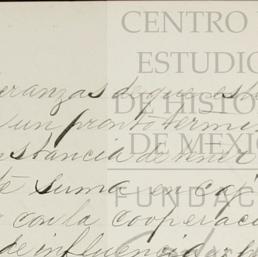 CENTRO
ESTUDIO
DE HISTO
DE MEXI
FUNDAC
eranzas de que este
un pronto termi
nstancia de tener
suma en caj
con la cooperaci
de influencia